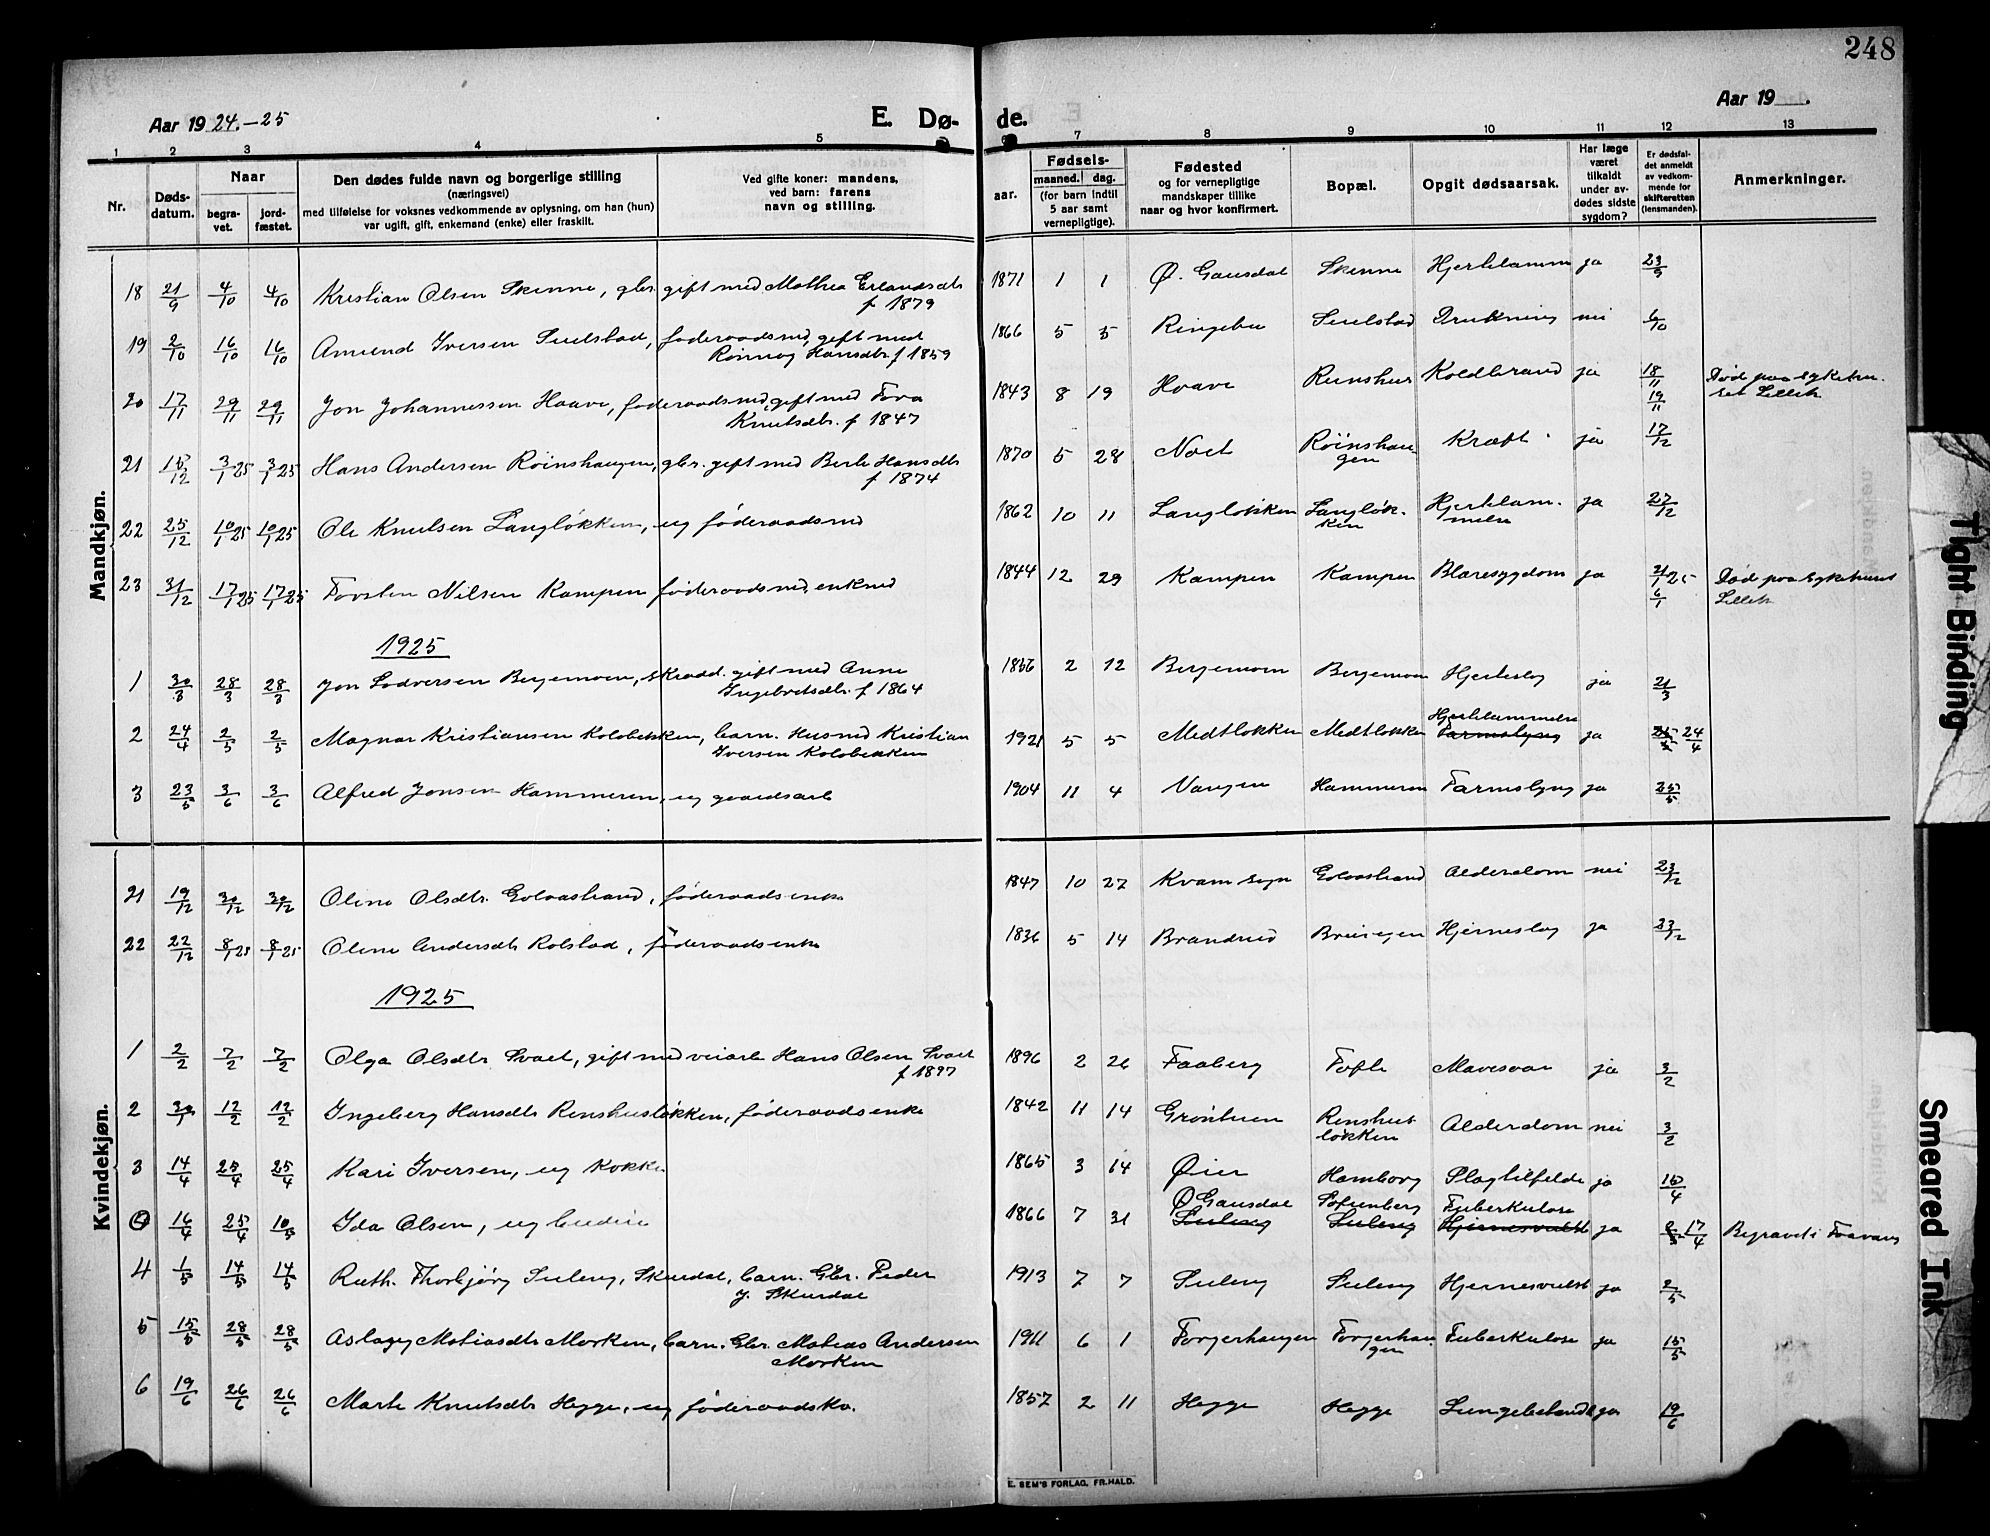 248
Aar 1924.-25
E. Dø-
de.
Aar 19 .
1 2 3 4 5 6 7 8 9 10 11 12 13
Nr.
Døds-
datum.
Naar
begra-
vet.
jord-
fæstet.
Den dødes fulde navn og borgerlige stilling
(næringsvei)
med tilføielse for voksnes vedkommende av oplysning, om han (hun)
var ugift, gift, enkemand (enke) eller fraskilt.
Ved gifte koner: mandens,
ved barn: farens
navn og stilling.
Fødsels-
aar.
maaned. dag.
(for barn indtil
5 aar samt
vernepligtige).
Fødested
og for vernepligtige
mandskaper tillike
naar og hvor konfirmert.
Bopæl.
Opgit dødsaarsak.
Har læge
været
tilkaldt
under av-
dødes sidste
sygdom?
Er dødsfal-
det anmeldt
av vedkom-
mende for
skifteretten
(lensmanden).
Anmerkninger.
Mandkjøn.
18 21/9 4/10 4/10 Kristian Olsen Skinne, gbr. gift med Mathea Erlandsdtr f 1879 1871 1 1 Ø. Gausdal Skinne Hjertelamm ja 23/9
19 2/10 16/10 16/10 Amund Iversen Suilstad, føderaadsmd, gift med Rønnog Hansdtr. f 1859 1866 5 5 Ringebu Suilstad Drukning nei 6/10
20 17/11 29/11 29/11 Jon Johannessen Haave, føderaadsmd, gift med Tora Knutsdtr. f 1847 1843 8 19 Haave Runshus Koldbrand ja 18/11 19/11 Død paa sykehu-
set Lilleh
21 15/12 3/1 25 3/1 25 Hans Andersen Røinshaugen, gbr. gift med Berte Hansdtr f 1874 1870 5 28 Noet Røinshau-
gen Kræft ja 17/12
22 25/12 10/1 25 10/1 25 Ole Knutsen Langløkken, ug føderaadsmd 1862 10 11 Langløkken Langløk-
ken Hjertelam-
melse ja 27/12
23 31/12 17/1 25 17/1 25 Torsten Nilsen Kampen føderaadsmd, enkmd 1844 12 29 Kampen Kampen Blæresygdom ja 2/1 25 6/1 Død paa sykehuset
Lilleh
1925
1 20/3 28/3 28/3 Jon Sodversen Bergemoen, skrædd. gift med Anne Ingebretsdtr. f 1864 1856 2 12 Bergemoen Bergemoen Hjerteslag ja 21/3
2 24/4 2/5 2/5 Magnar Kristiansen Kolobekken, barn. Husmd Kristian Iversen Kolobekken 1921 5 5 Medtløkken Medtløkken Hjertelammelse Tarmslyng ja 24/4
3 23/5 3/6 3/6 Alfred Jonsen Hammeren, ug gaardsarb 1904 11 4 Vangen Hammeren Tarmslyng ja 25/5
Kvindekjøn.
21 19/12 30/12 30/12 Oline Olsdtr. Golaastrand, føderaadsenke 1847 10 27 Kvam sogn Golaastrand Alderdom nei 23/12
22 22/12 8/1 25 8/1 25 Oline Andersdtr Rolstad, føderaadsenke 1836 5 14 Brandrud Breisgen Hjerneslag ja 23/12
1925
1 2/2 7/2 7/2 Olga Olsdtr Svaet, gift med veiarb Hans Olsen Svaet f 1897 1896 2 26 Faaberg Tofte Mavesaar ja 3/2
2 30/1 12/2 12/2 Ingeberg Hansdtr Renshusløkken, føderaadsenke 1842 11 14 Grøntuen Renshus-
løkken Alderdom nei 3/2
3 14/4 25/4 25/4 Kari Iversen, ug kokke 1865 3 14 Øier Hamborg Slagtilfelde ja 15/4
4 16/4 25/4 10/5 Ida Olsen, ug budeie 1866 7 31 Ø Gausdal Suleng Sofienberg Suleng Tuberkulose Hjernesvulst ja 17/4 Begravet i Faavang
4 1/5 14/5 14/5 Ruth Thorbjørg Suleng, Skurdal, barn. Gbr. Peder J. Skurdal 1913 7 7 Suleng Suleng Hjernesvulst ja 2/5
5 15/5 28/5 28/5 Aslaug Matiasdtr Morken, barn. Gbr. Matias Andersen Morken 1911 6 1 Torgerhaugen Torgerhau-
gen Tuberkulose ja 15/5
6 19/6 26/6 26/6 Marte Knutsdtr Hegge, ug føderaadsko. 1857 2 11 Hegge Hegge Lungebetændelse ja 19/6
E. SEM'S FORLAG, FR.HALD.
Tight Binding
Smeared Ink